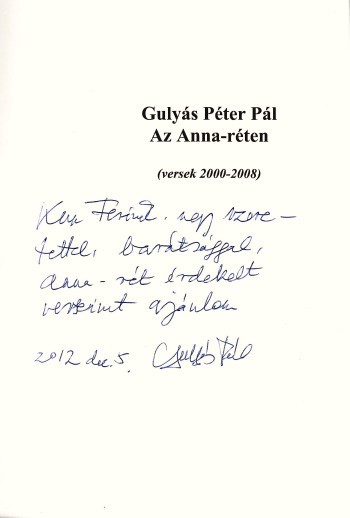 Gulyás Péter Pál
Az Anna-réten
(versek 2000-2008)
Ferinek nagy szere-
tettel, barátsággal,
Anna-rét érdekelt
verseimet ajánlom
2012 dec. 5. Gulyás Pál